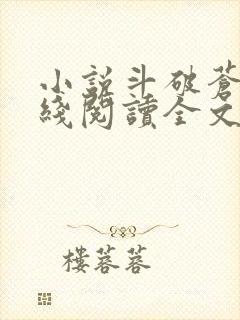 小說斗破蒼
綫閱讀全文
樓蓉蓉